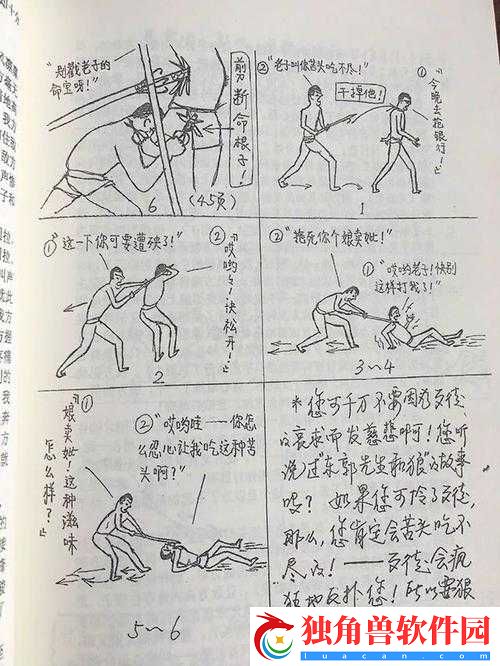 "别戳老子的
命宝呀!"
剪断命根子!
6
(45页)
②"老子叫你苦头吃不尽!"
干掉他!
①"今晚去抢银行!"
1
①"这一下你可要遭殃了!"
②"哎哟々!快松开!"
2
②"拖死你个娘卖妣!"
①"哎哟老子!快别
这样打我了!"
3~4
①"娘卖妣!这种滋味
怎么样?"
②"哎哟哇——你怎
么忍心让我吃这种苦
头啊?"
5~6
*您可千万不要因为歹徒
的哀求而发慈悲啊!您听
说过"东郭先生和狼"的故事
吗?如果您可怜了歹徒,
那么,您肯定会苦头吃不
尽的!——歹徒会疯
狂地反扑您!所以要狠
独角兽软件园
luacan.com